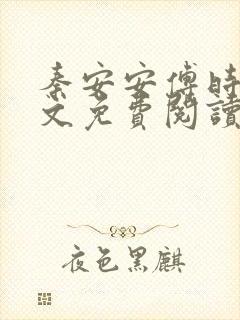 秦安安傅时
文免費閱讀
夜色黑麒